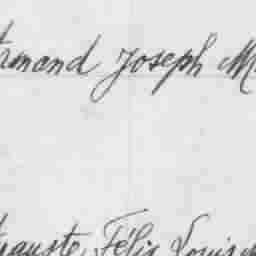 rmand Joseph M
uguste, Félix Louis